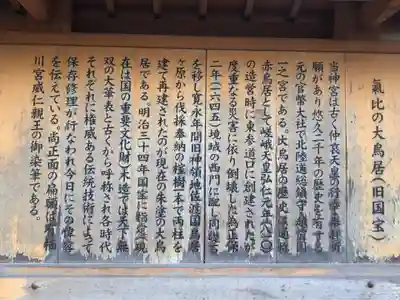 氣比の大鳥居(旧国宝)
当神宮は古く仲哀天皇の行幸
願があり悠久二千年の歴史を有する
元の官幣大社で北陸道総鎮守越前国
一之宮である。此鳥居の歴史は
赤鳥居として嵯峨天皇弘仁元年(八一〇)
の造営時に東参道口に創建されたが
度重なる災害に依り倒壊した為正保
二年(一六四五)境域の西門に配し同礎石
を移し寛永年間旧神領地佐渡国鳥居
ヶ原から伐採奉納の榁樹一本で両柱を
建て再建されたのが現在の朱塗の大鳥
居である。明治三十四年国宝に指定現
在は国の重要文化財。木造では天下無
双の大華表と古くから呼称され各時代
それぞれに権威ある伝統技術によって
保存修理が行なわれ今日にその偉容
を伝えている。尚正面の扁額は有栖
川宮威仁親王の御染筆である。